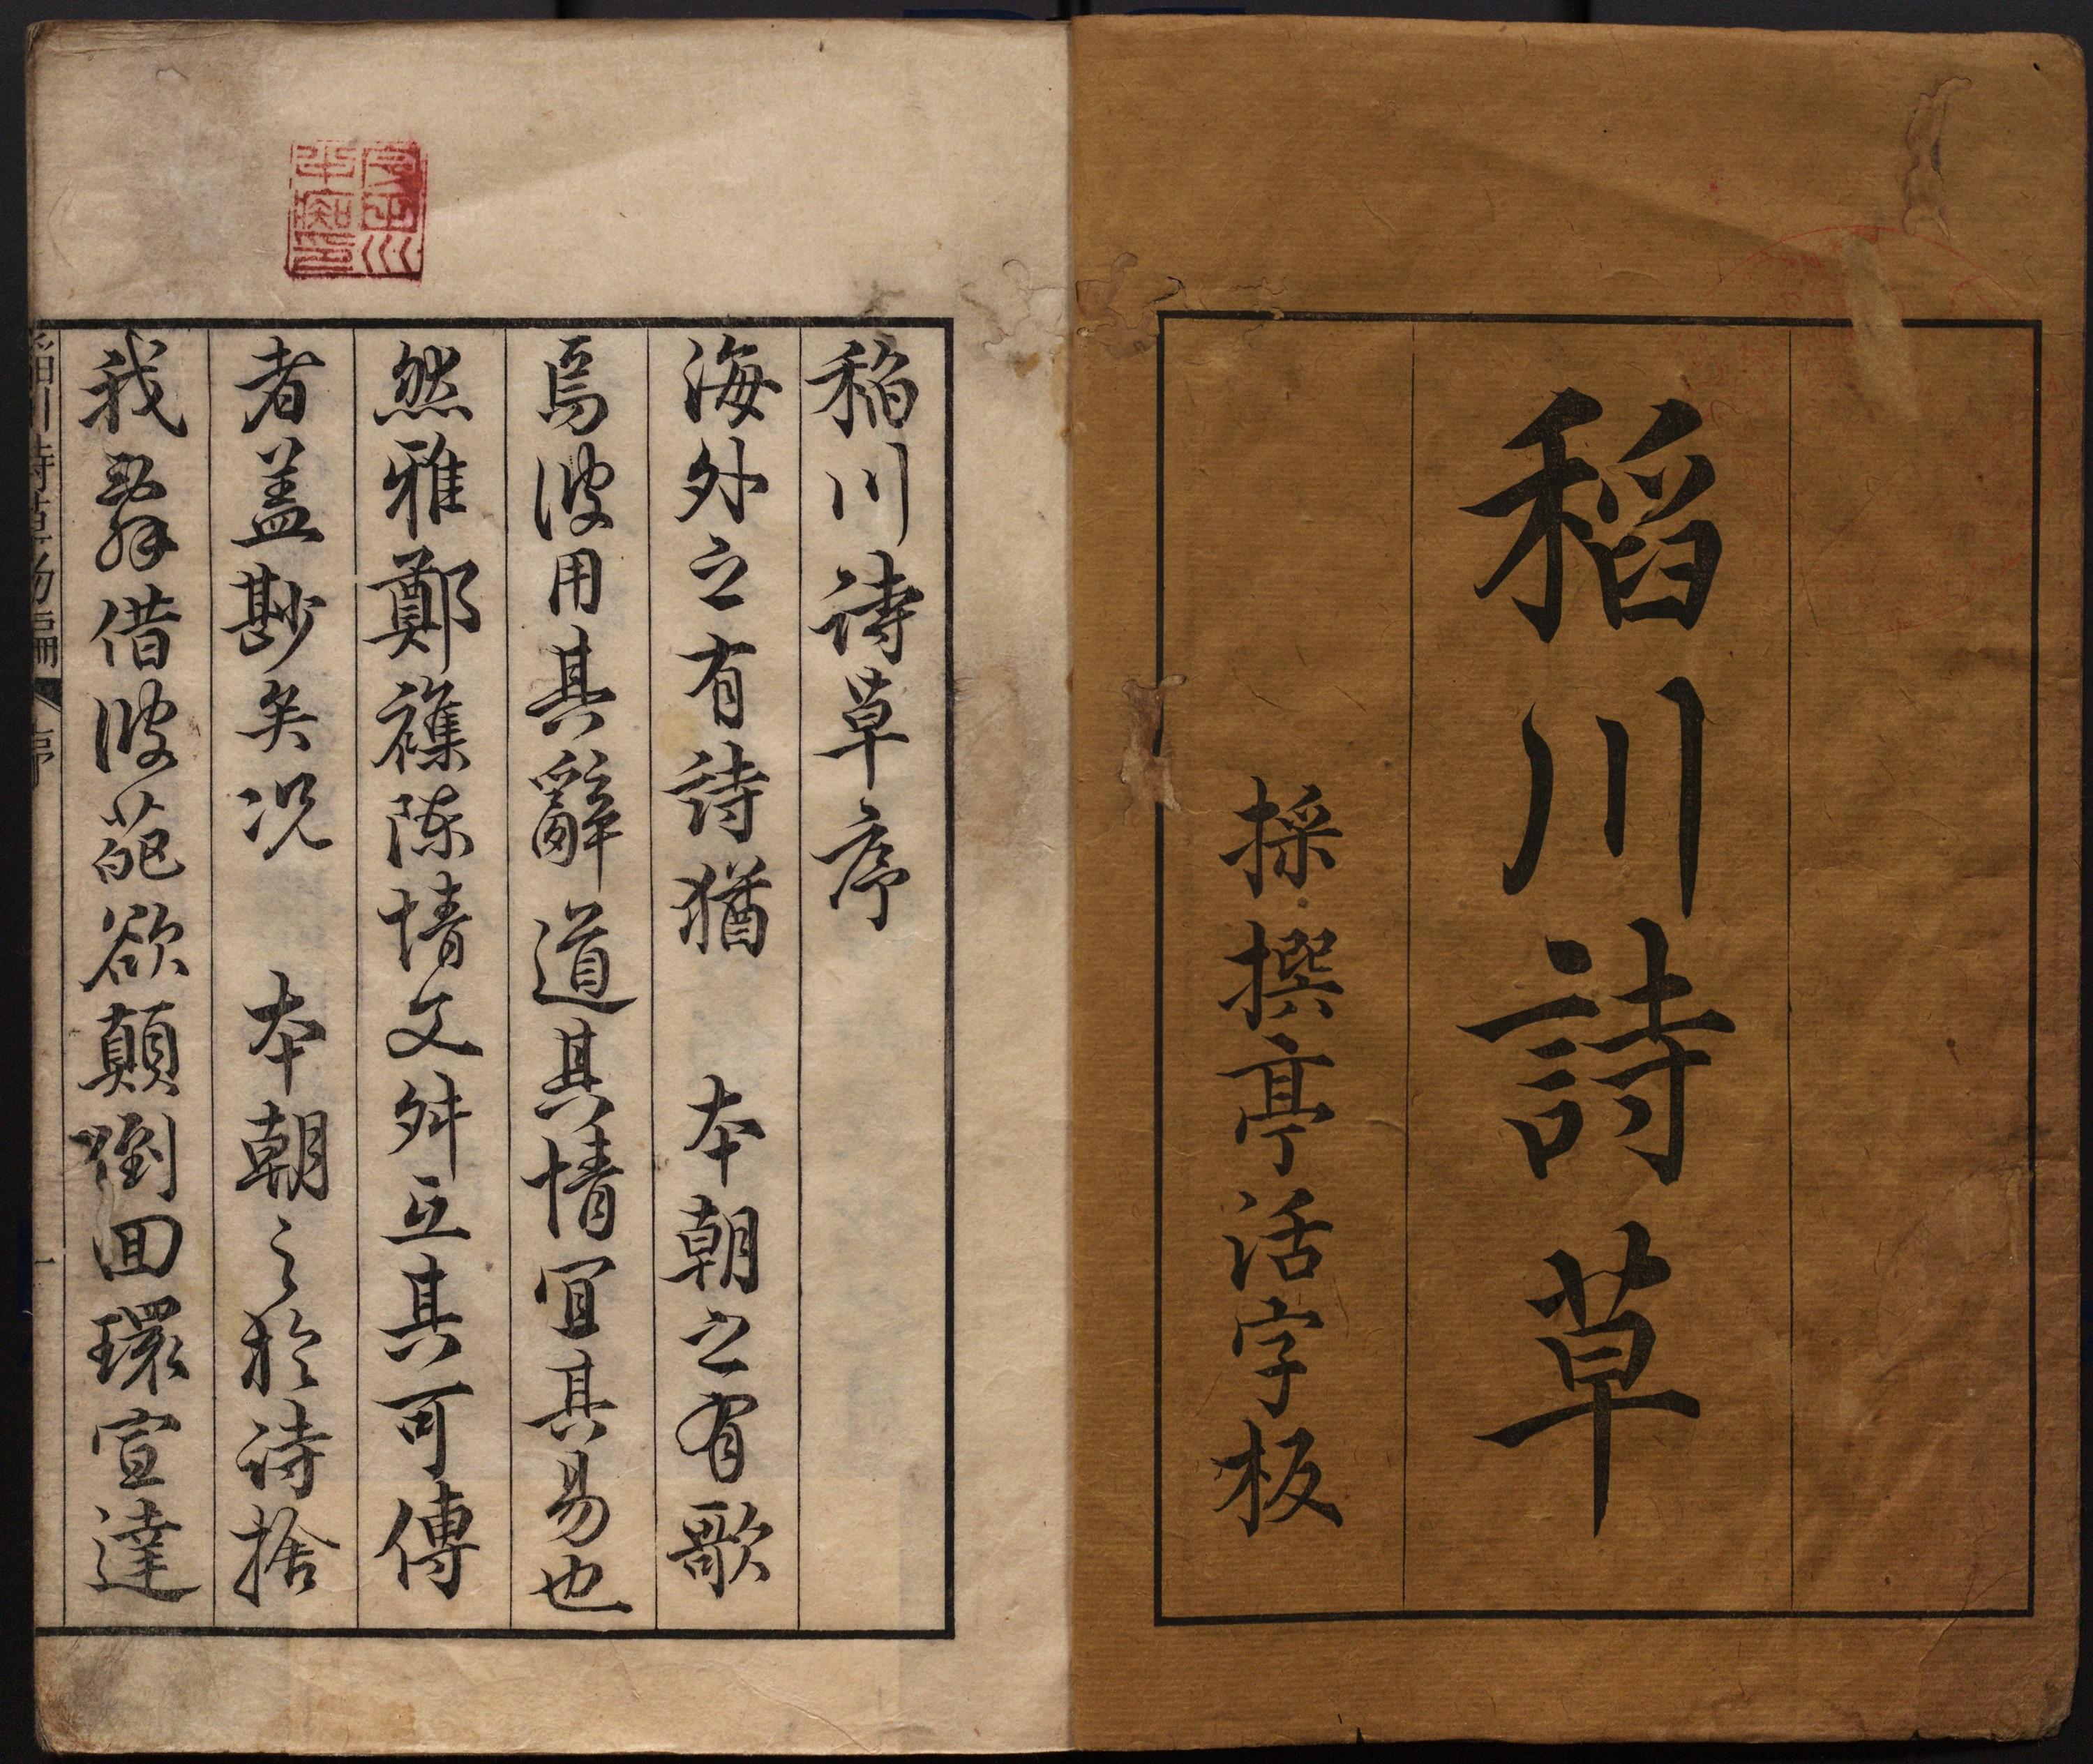 稻川詩草
採撰亭活字板
稻川诗草序
海外之有詩猶　本朝之有歌
焉彼用其辭道其情宜其易也
然雅鄭襍陳情文舛互其可傳
者盖尠矣況　本朝之於诗捨
我辭借彼葩欲顛倒回環宣達
稻川詩草初編　序　一